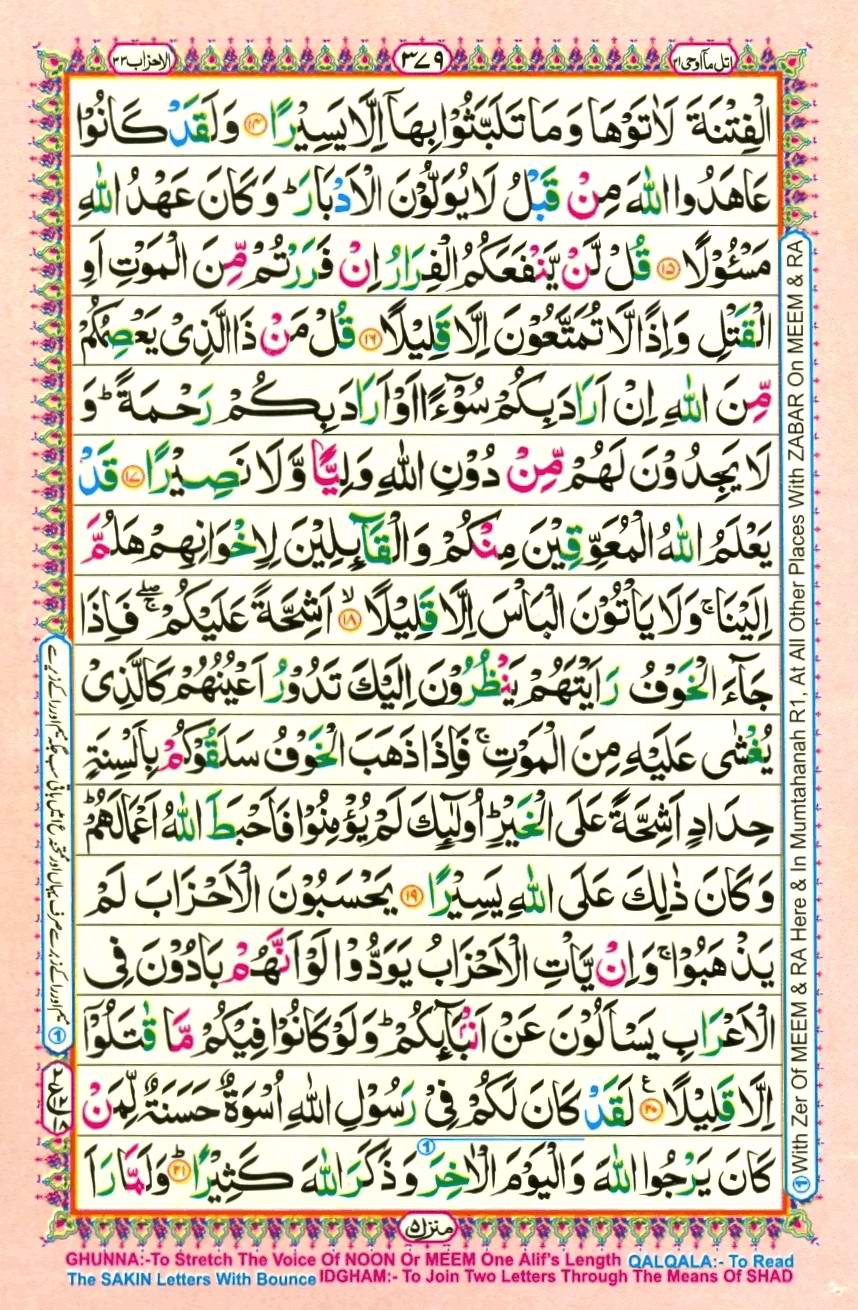 اتل مآ اوحی ۲۱
۳۷۹
الاحزاب ۳۳
الْفِتْنَةَ لَاٰتَوْهَا وَمَا تَلَبَّثُوْا بِهَاۤ اِلَّا يَسِيْرًا ﴿۱۴﴾ وَلَقَدْ كَانُوْا
عَاهَدُوا اللّٰهَ مِنْ قَبْلُ لَا يُوَلُّوْنَ الْاَدْبَارَ ؕ وَكَانَ عَهْدُ اللّٰهِ
مَسْئُوْلًا ﴿۱۵﴾ قُلْ لَّنْ يَّنْفَعَكُمُ الْفِرَارُ اِنْ فَرَرْتُمْ مِّنَ الْمَوْتِ اَوِ
الْقَتْلِ وَاِذًا لَّا تُمَتَّعُوْنَ اِلَّا قَلِيْلًا ﴿۱۶﴾ قُلْ مَنْ ذَا الَّذِىْ يَعْصِمُكُمْ
مِّنَ اللّٰهِ اِنْ اَرَادَ بِكُمْ سُوْٓءًا اَوْ اَرَادَ بِكُمْ رَحْمَةً ؕ وَ
لَا يَجِدُوْنَ لَهُمْ مِّنْ دُوْنِ اللّٰهِ وَلِيًّا وَّلَا نَصِيْرًا ﴿۱۷﴾ قَدْ
يَعْلَمُ اللّٰهُ الْمُعَوِّقِيْنَ مِنْكُمْ وَالْقَآئِلِيْنَ لِاِخْوَانِهِمْ هَلُمَّ
اِلَيْنَا ۚ وَلَا يَاْتُوْنَ الْبَاْسَ اِلَّا قَلِيْلًا ﴿۱۸﴾ ۙ اَشِحَّةً عَلَيْكُمْ ۚۖ فَاِذَا
جَآءَ الْخَوْفُ رَاَيْتَهُمْ يَنْظُرُوْنَ اِلَيْكَ تَدُوْرُ اَعْيُنُهُمْ كَالَّذِىْ
يُغْشٰى عَلَيْهِ مِنَ الْمَوْتِ ۚ فَاِذَا ذَهَبَ الْخَوْفُ سَلَقُوْكُمْ بِاَلْسِنَةٍ
حِدَادٍ اَشِحَّةً عَلَى الْخَيْرِ ؕ اُولٰٓئِكَ لَمْ يُؤْمِنُوْا فَاَحْبَطَ اللّٰهُ اَعْمَالَهُمْ ؕ
وَكَانَ ذٰلِكَ عَلَى اللّٰهِ يَسِيْرًا ﴿۱۹﴾ يَحْسَبُوْنَ الْاَحْزَابَ لَمْ
يَذْهَبُوْا ۚ وَاِنْ يَّاْتِ الْاَحْزَابُ يَوَدُّوْا لَوْ اَنَّهُمْ بَادُوْنَ فِى
الْاَعْرَابِ يَسْاَلُوْنَ عَنْ اَنْۢبَآئِكُمْ ؕ وَلَوْ كَانُوْا فِيْكُمْ مَّا قٰتَلُوْۤا
اِلَّا قَلِيْلًا ﴿۲۰﴾ ع لَقَدْ كَانَ لَكُمْ فِىْ رَسُوْلِ اللّٰهِ اُسْوَةٌ حَسَنَةٌ لِّمَنْ
كَانَ يَرْجُوا اللّٰهَ وَالْيَوْمَ الْاٰخِرَ وَذَكَرَ اللّٰهَ كَثِيْرًا ﴿۲۱﴾ ؕ وَلَمَّا رَاَ
①
① With Zer Of MEEM & RA Here & In Mumtahanah R1, At All Other Places With ZABAR On MEEM & RA
منزل ۵
GHUNNA:-To Stretch The Voice Of NOON Or MEEM One Alif's Length QALQALA:- To Read
The SAKIN Letters With Bounce IDGHAM:- To Join Two Letters Through The Means Of SHAD